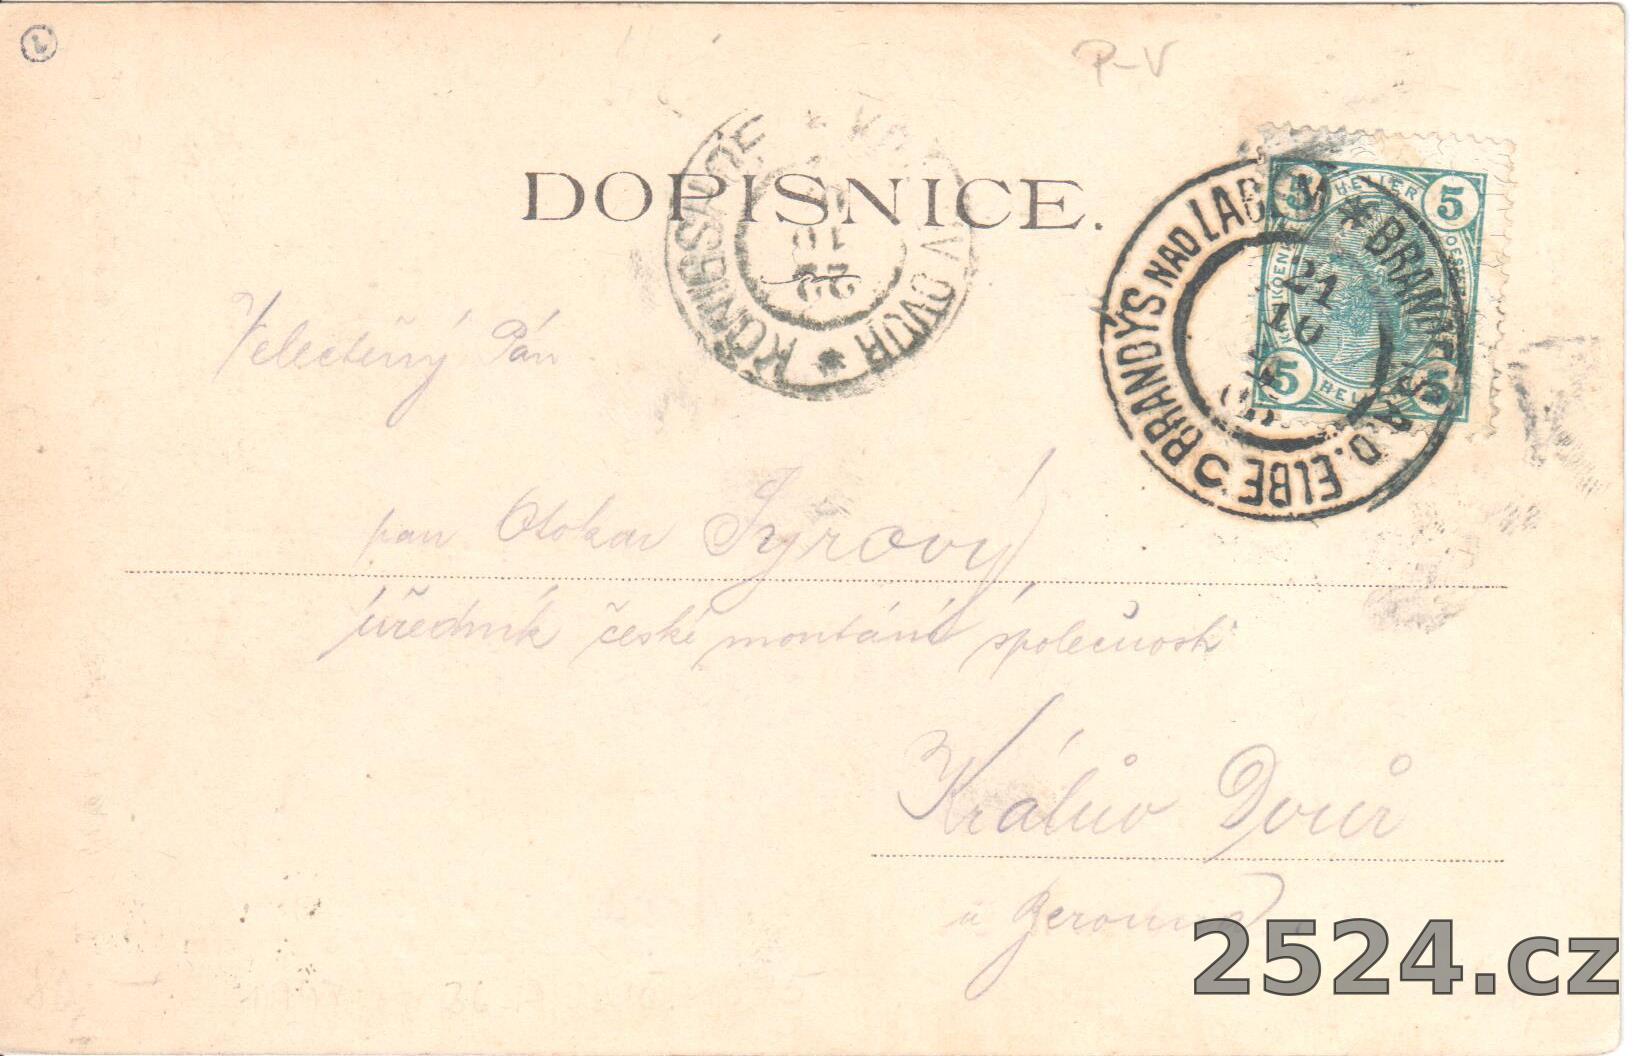 P-V
DOPISNICE.
KÖNIGSHOF * KRÁLŮV DVŮR *
22
10
BRANDÝS NAD LABEM * BRANDEIS A.D. ELBE
21
10
5 HELLER 5
5 HELLER 5
Velectěný Pán
pan Otokar Syrový
úředník české montání společnosti
Králův Dvůr
u Berouna
2524.cz